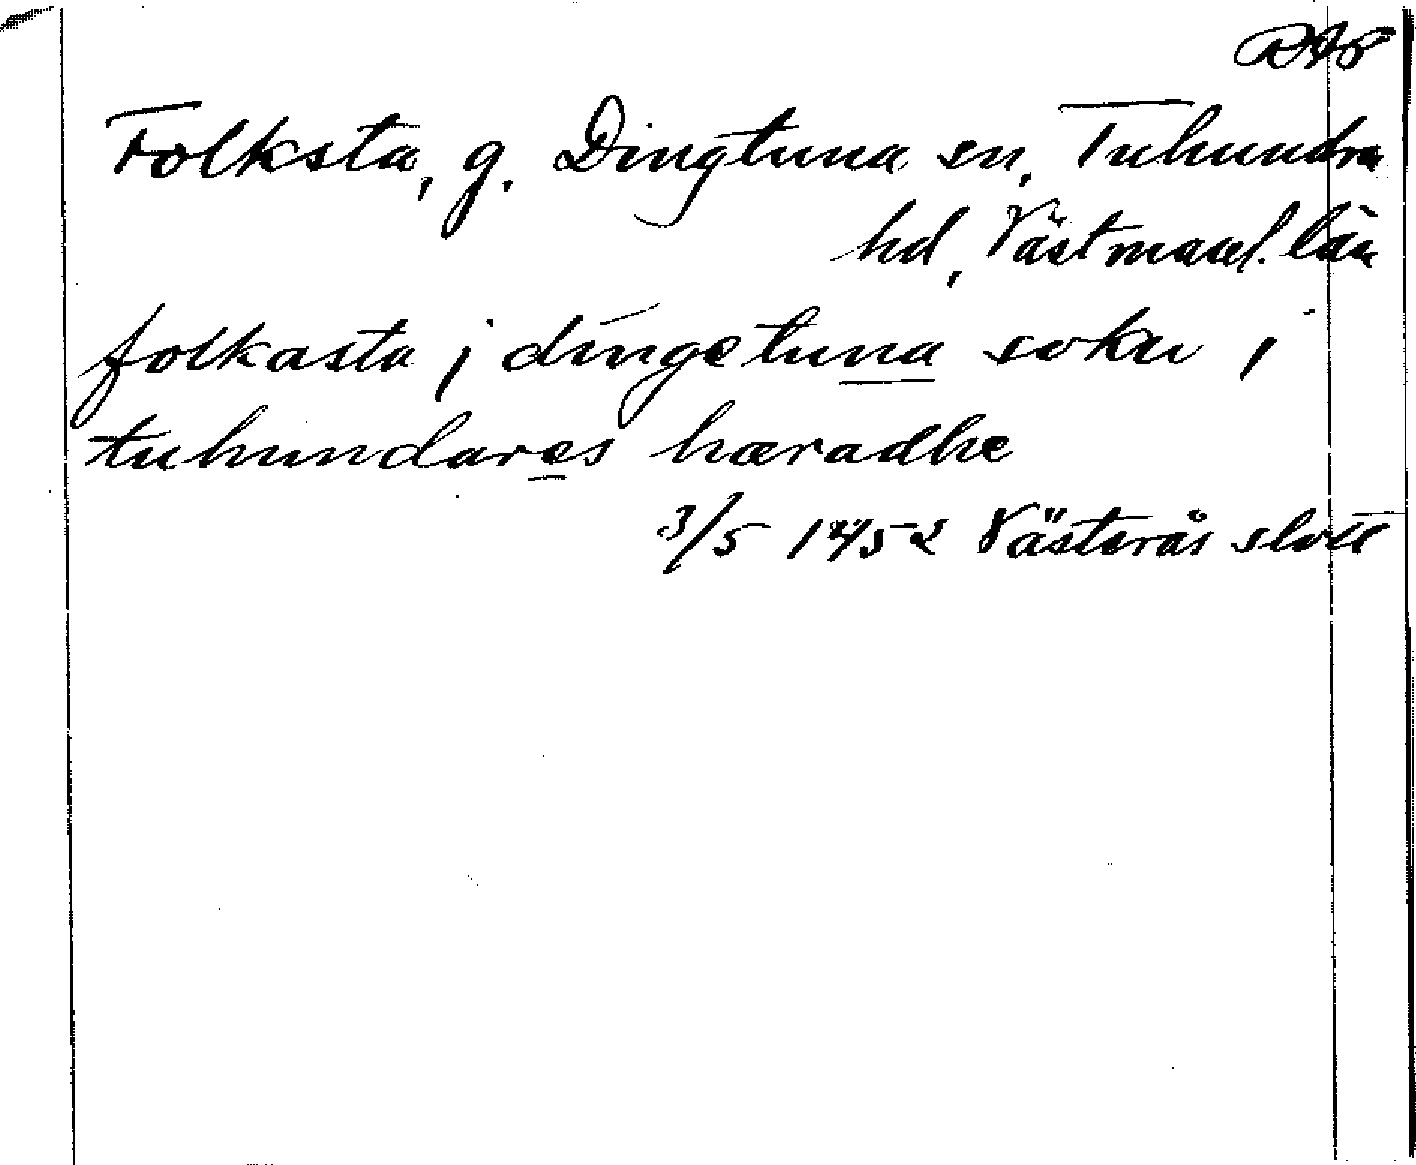 RAP
Folksta, g. Dingtuna sn, Tuhundra
hd, Västmanl. län
folkasta j dingetuna sokn j
tuhundares hæradhe
3/5 1452 Västerås slott